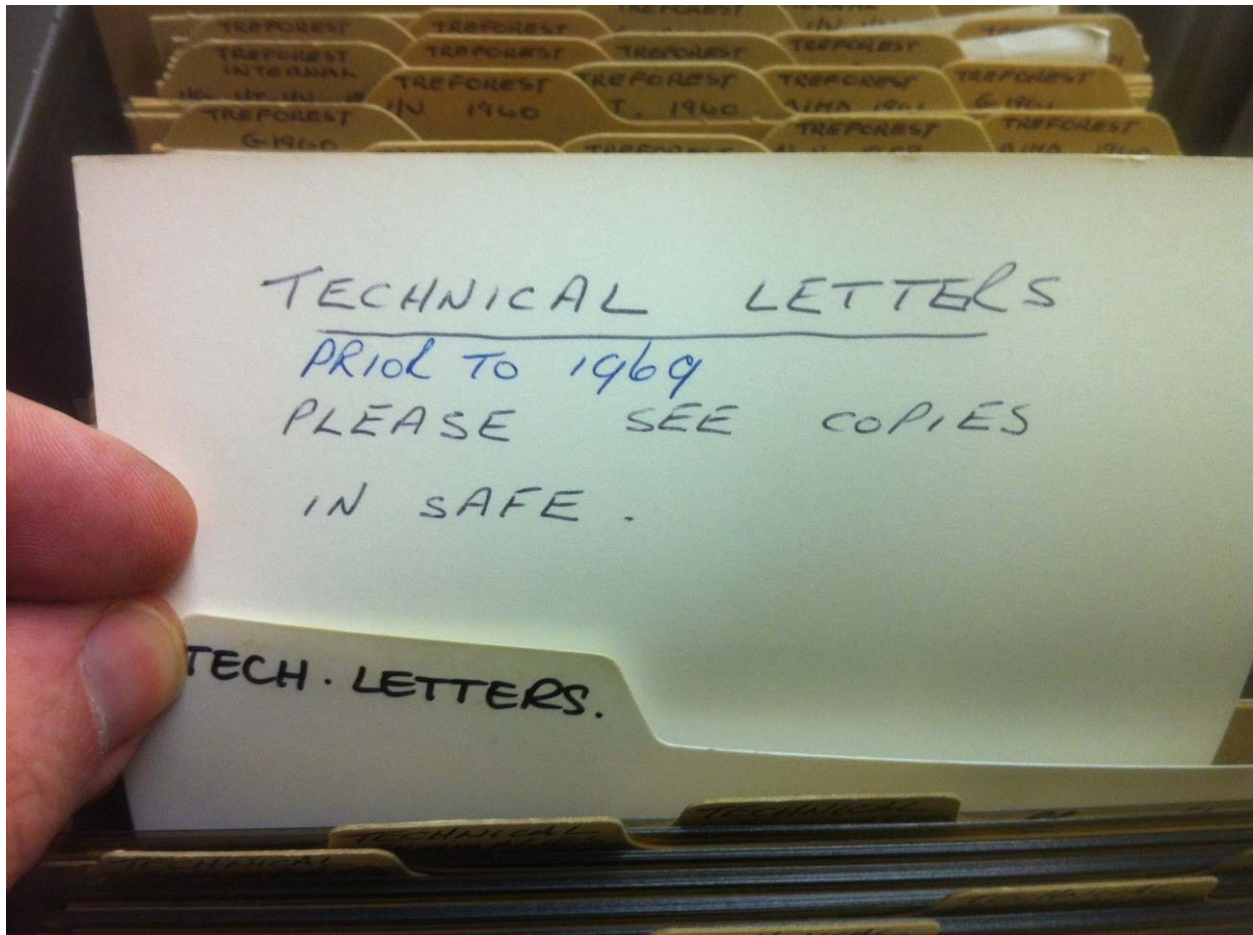 TREFOREST
TREFOREST
TREFOREST
INTERNAL
TREFOREST
TREFOREST
TREFOREST
TREFOREST
I/N 1960
TREFOREST
T, 1960
TREFOREST
TREFOREST
G 1961
TREFOREST
G 1960
TREFOREST
TREFOREST
TREFOREST
TECHNICAL LETTERS
PRIOR TO 1969
PLEASE SEE COPIES
IN SAFE .
TECH. LETTERS.
TECHNICAL
TECHNICAL
TECHNICAL